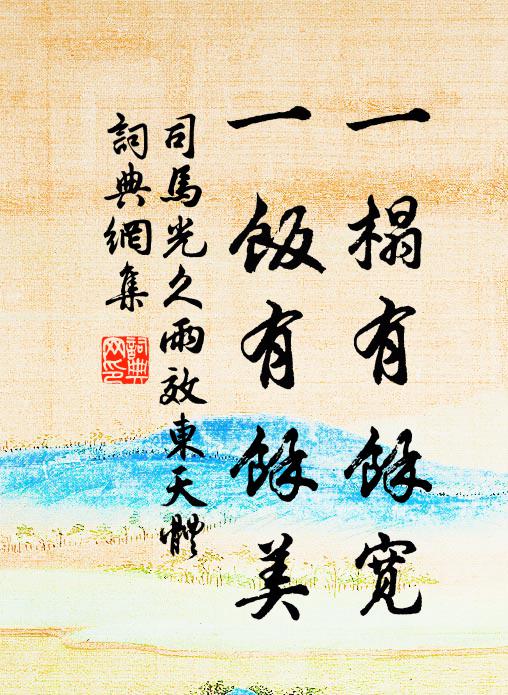 一榻有餘寬
一飯有餘美
司馬光久雨效東天體
詞典網集
詞典
网印